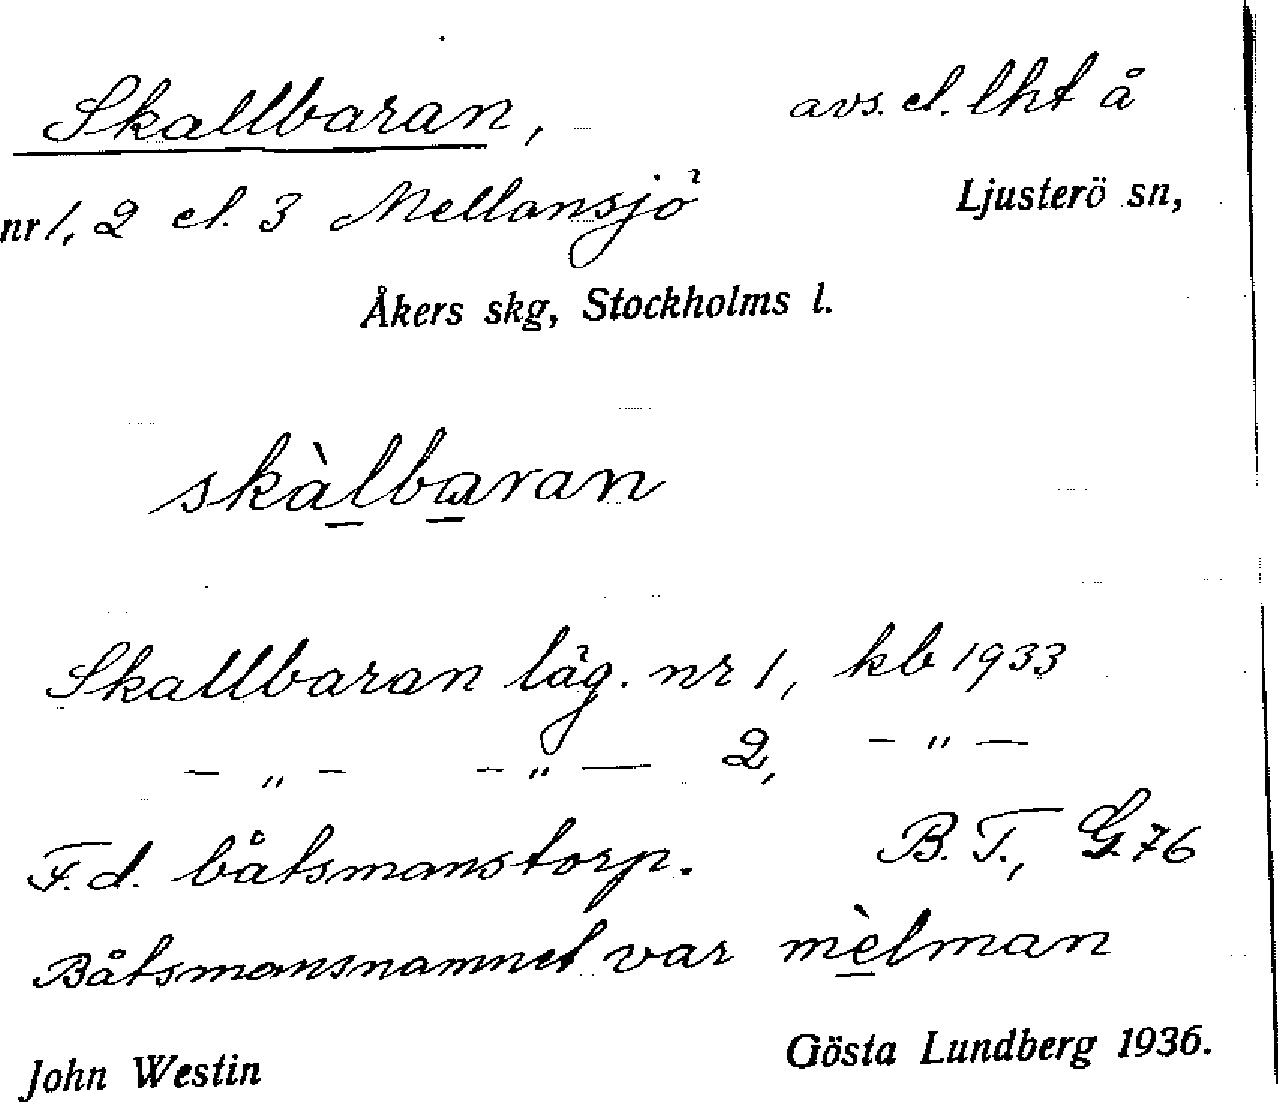 Skallbaran, avs. el. lht å
nr 1, 2 el. 3 Mellansjö Ljusterö sn,
Åkers skg, Stockholms l.
skàlbaran
Skallbaran läg. nr 1, kb 1933
— " — — " — 2, — " —
F.d. båtsmanstorp. B.T., G.76
Båtsmansnamnet var mèlman
John Westin Gösta Lundberg 1936.